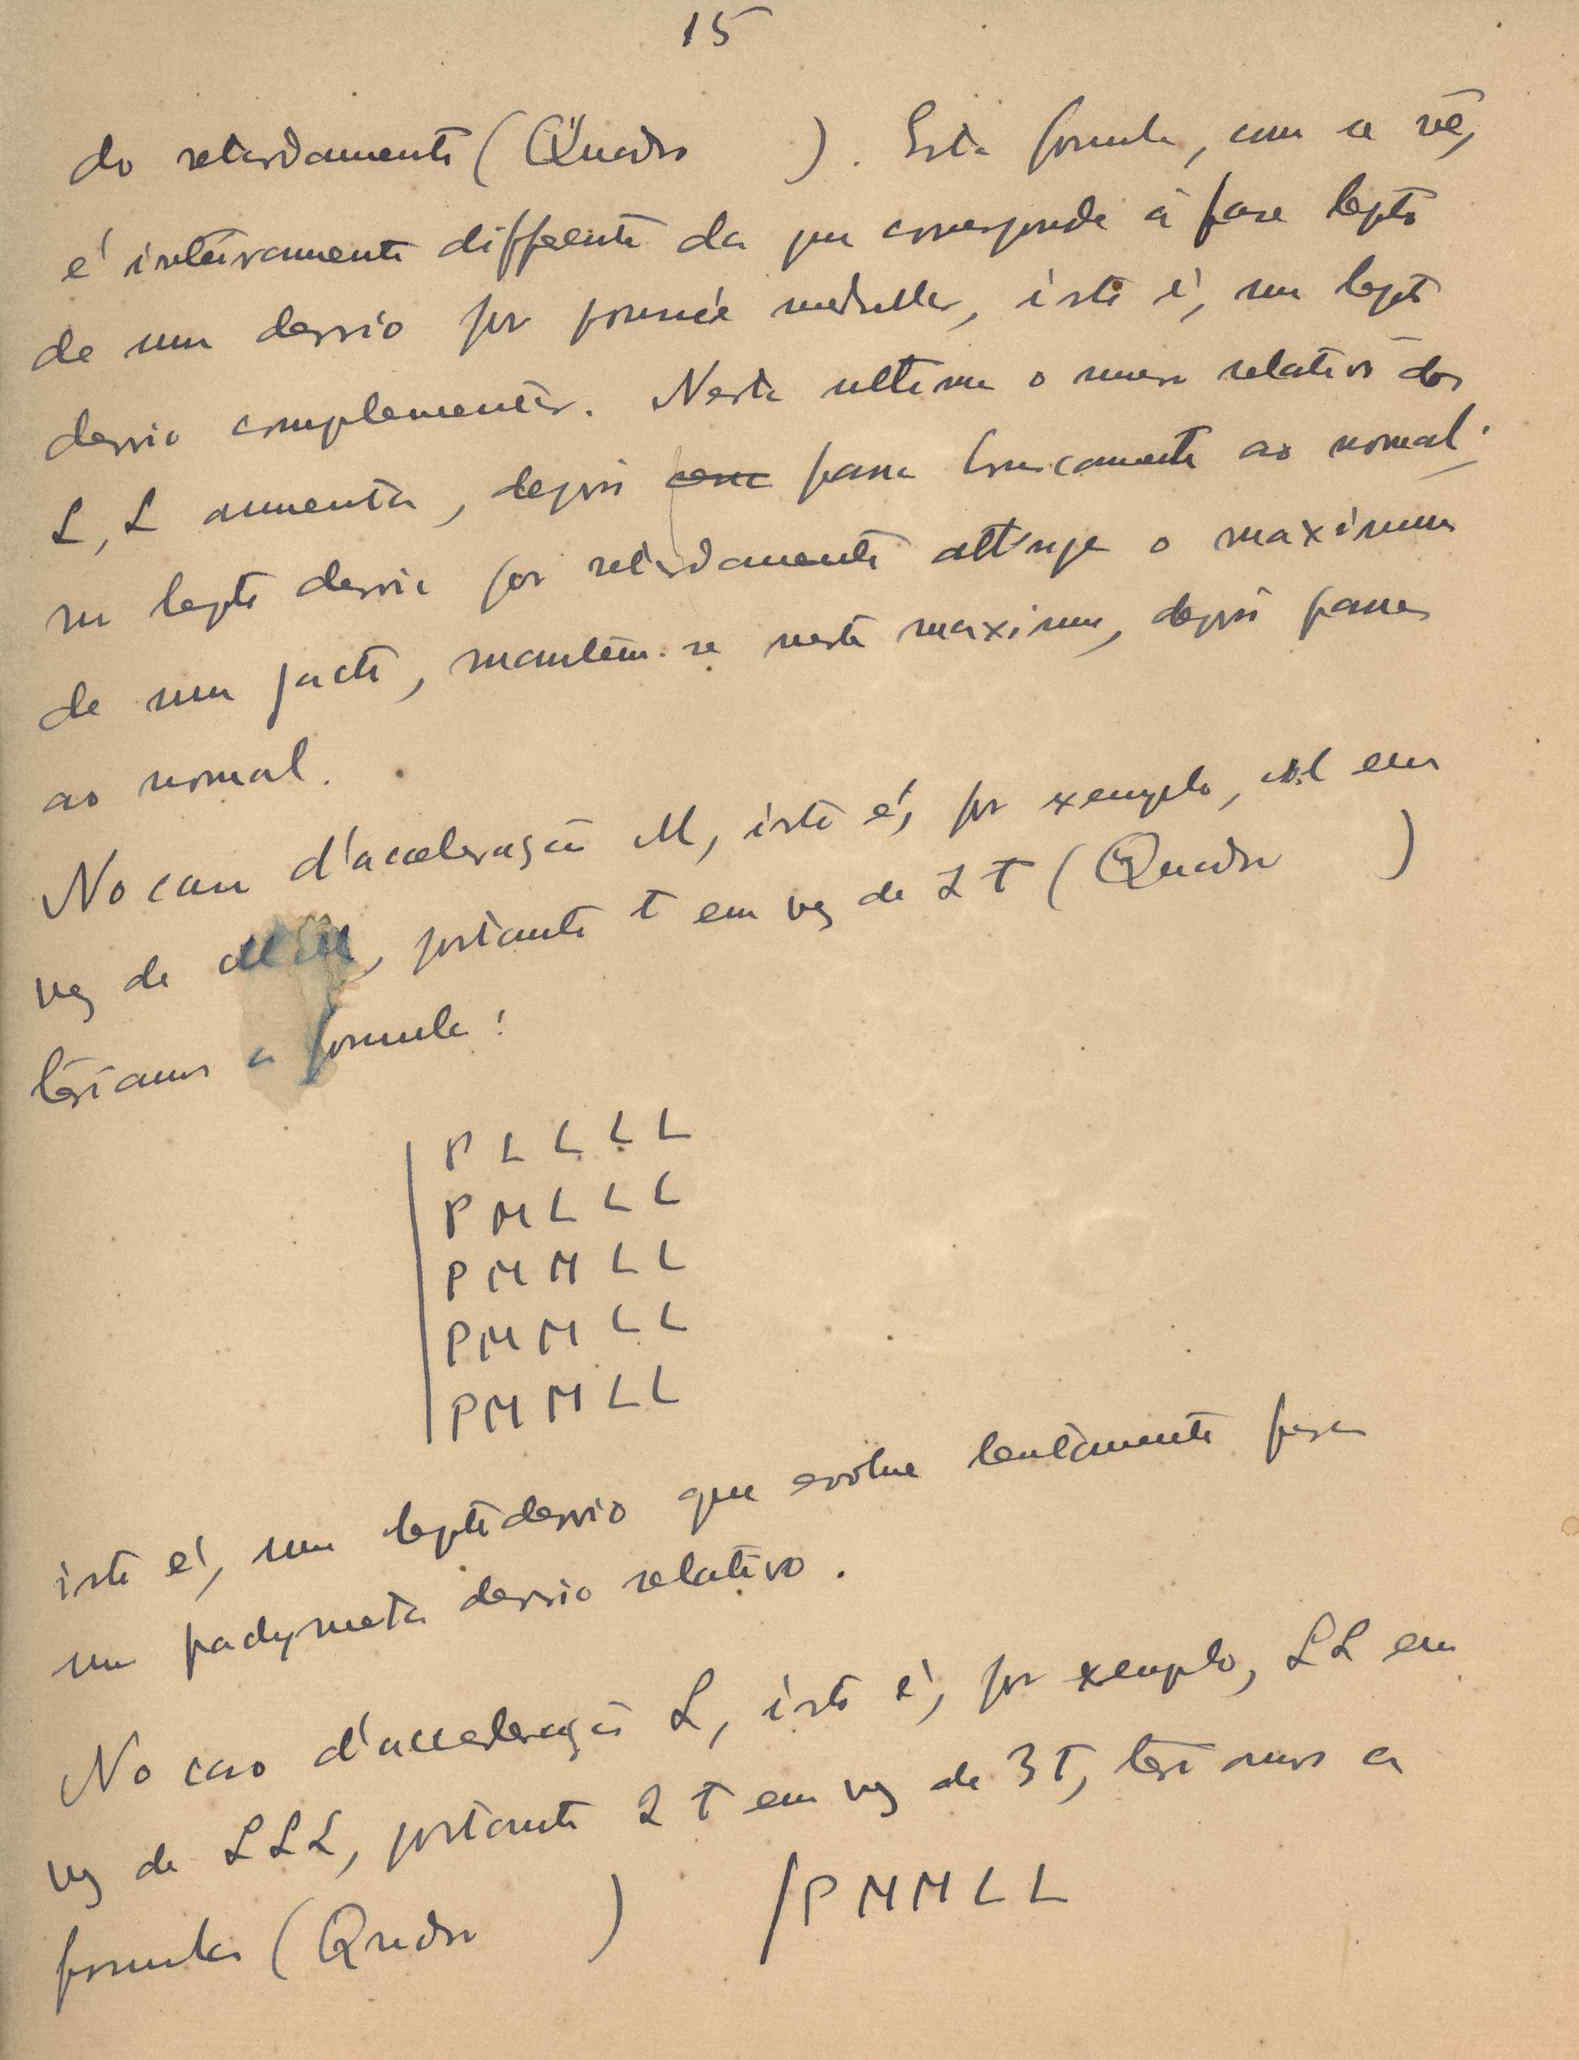 15
do retardamento (Quadro ). Esta formula, como se vê,
é inteiramente differente da que corresponde á fase lepto
de um desvio por medullar, isto é, um lepto
desvio complementar. Nesta ultima o numero relativo dos
L, L augmenta, depois passa bruscamente ao normal;
no lepto desvio por retardamento attinge o maximum
de um jacto, mantem-se neste maximum, depois passa
ao normal.
No caso d'acceleração M, isto é, por exemplo, M em
vez de MM, portanto T em vez de 2 T (Quadro )
teriamos a formula:
P L L L L
P M L L L
P M M L L
P M M L L
P M M L L
isto é, um lepto desvio que evolue lentamente para
um pachymeta desvio relativo.
No caso d'acceleração L, isto é, por exemplo, LL em
vez de LLL, portanto 2 T em vez de 3T, teriamos a
formula (Quadro ) /P M M L L